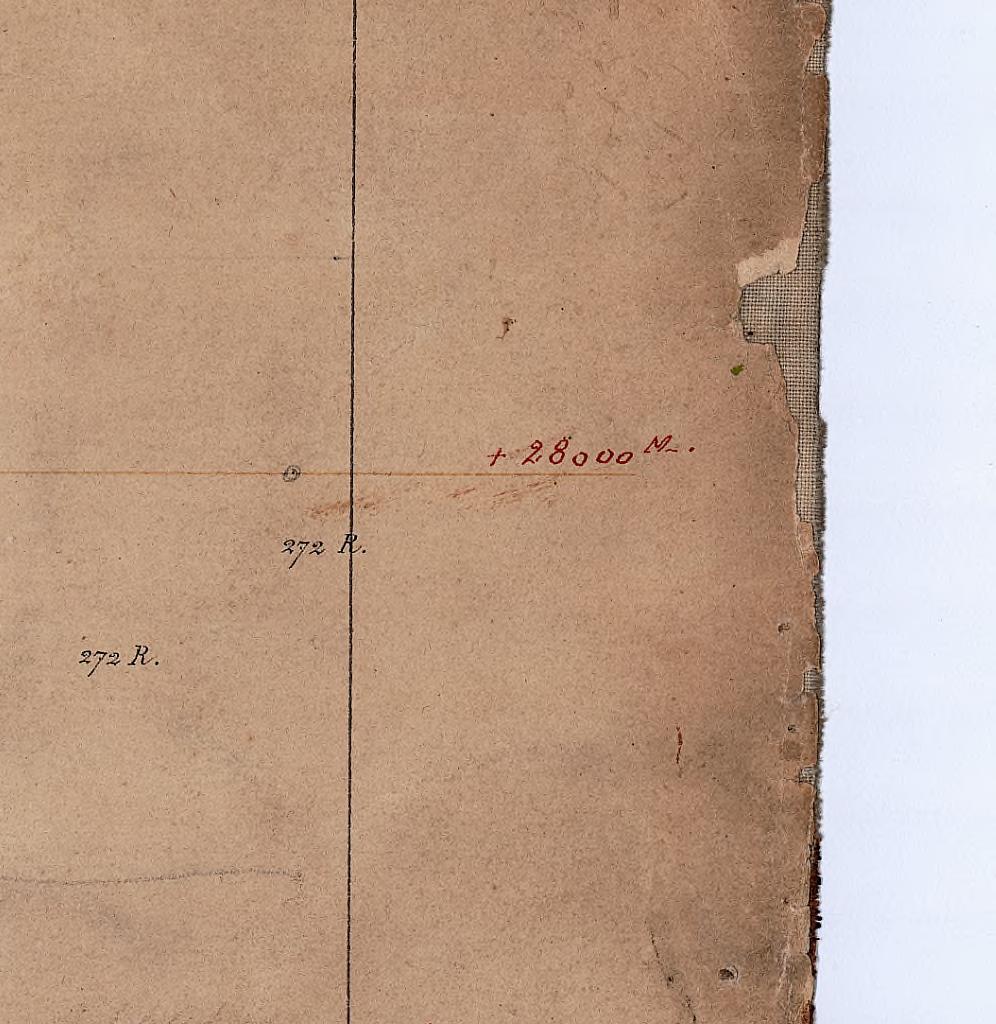 + 28000 M.
272 R.
272 R.